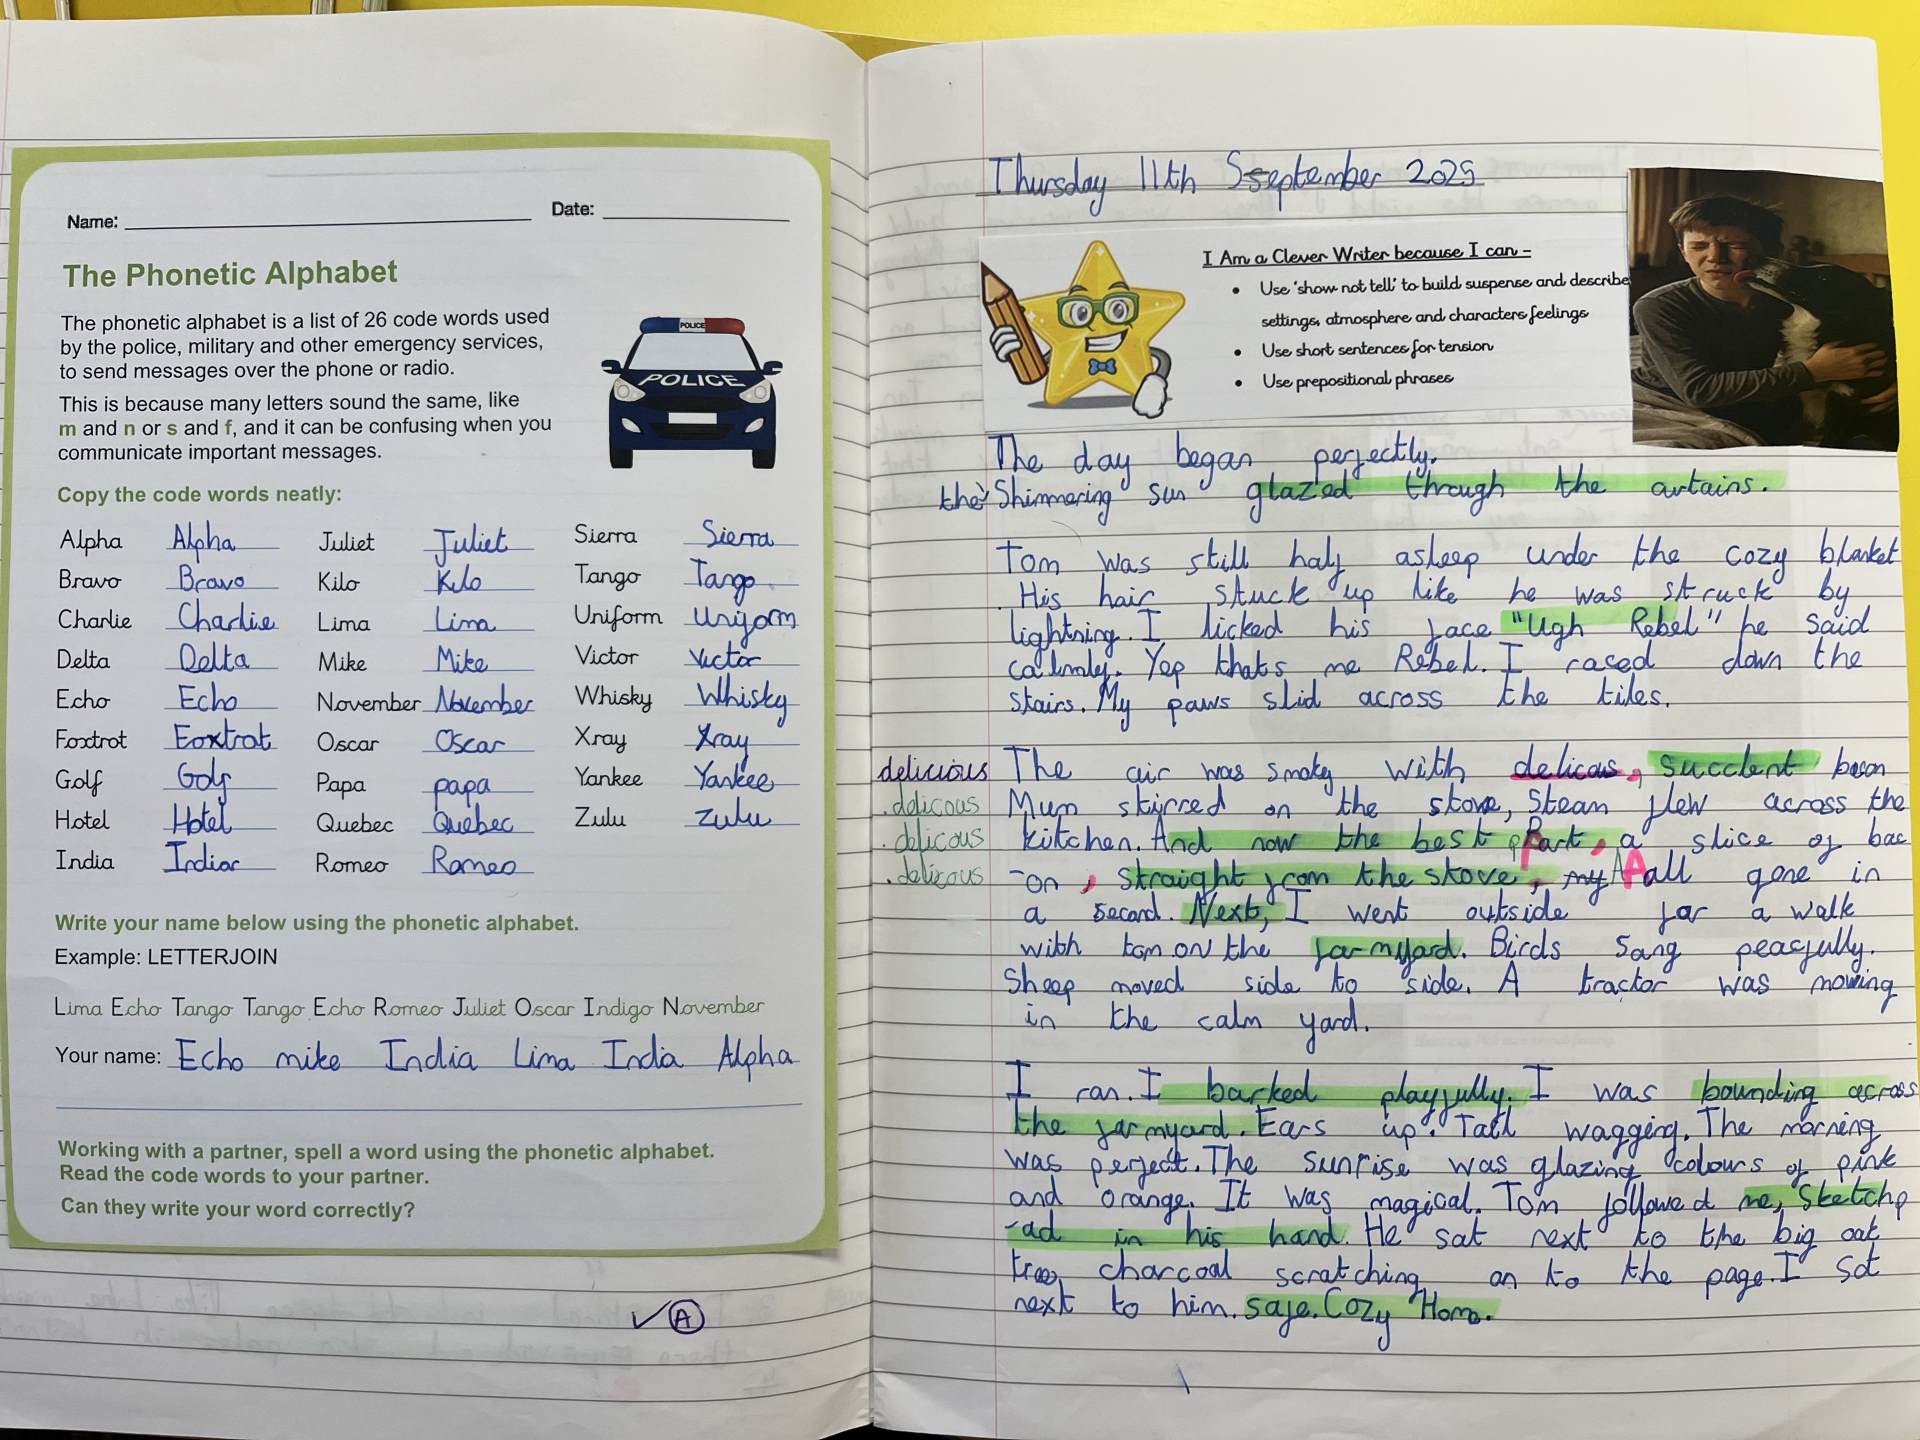 Name:
Date:
The Phonetic Alphabet
The phonetic alphabet is a list of 26 code words used
by the police, military and other emergency services,
to send messages over the phone or radio.
This is because many letters sound the same, like
m and n or s and f, and it can be confusing when you
communicate important messages.
POLICE
POLICE
Copy the code words neatly:
Alpha Alpha Juliet Juliet Sierra Sierra
Bravo Bravo Kilo Kilo Tango Tango
Charlie Charlie Lima Lima Uniform Uniform
Delta Delta Mike Mike Victor Victor
Echo Echo November November Whisky Whisky
Foxtrot Foxtrot Oscar Oscar Xray Xray
Golf Golf Papa papa Yankee Yankee
Hotel Hotel Quebec Quebec Zulu zulu
India India Romeo Romeo
Write your name below using the phonetic alphabet.
Example: LETTERJOIN
Lima Echo Tango Tango Echo Romeo Juliet Oscar Indigo November
Your name: Echo mike India Lima India Alpha
Working with a partner, spell a word using the phonetic alphabet.
Read the code words to your partner.
Can they write your word correctly?
A
Thursday 11th Sseptember 2025
I Am a Clever Writer because I can –
• Use 'show not tell' to build suspense and describe
settings, atmosphere and characters feelings
• Use short sentences for tension
• Use prepositional phrases
The day began perfectly.
the Shimmering sun glazed through the curtains.
Tom was still half asleep under the cozy blanket
. His hair stuck up like he was struck by
lightning. I licked his face "Ugh Rebel" he said
calmly. Yep thats me Rebel. I raced down the
stairs. My paws slid across the tiles.
delicious The air was smoky with delicas, succlent bacon
.delicous Mum stirred on the stove, Steam flew across the
.delicous kitchen. And now the best part, a slice of bac
.delicous -on, straight from the stove, my All gone in
a second. Next, I went outside for a walk
with tom on the farmyard. Birds sang peacfully.
Sheep moved side to side. A tractor was moving
in the calm yard.
I ran. I barked playfully. I was bounding across
the farmyard. Ears up. Tail wagging. The morning
was perfect. The sunrise was glazing colours of pink
and orange. It was magical. Tom followed me, sketchp
-ad in his hand. He sat next to the big oak
tree, charcoal scratching on to the page. I sat
next to him. safe. Cozy Home.